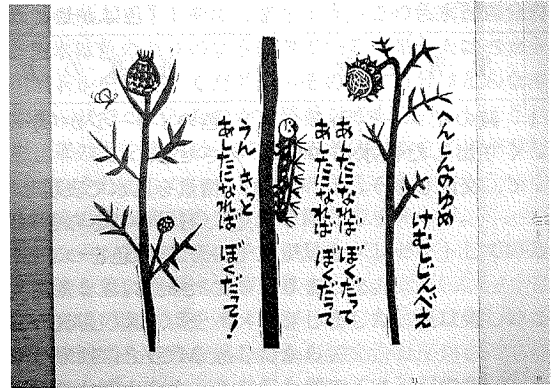 へんしんのゆめ
けむしじんべえ
あしたになれば ぼくだって
あしたになれば ぼくだって
うん きっと
あしたになれば ぼくだって!